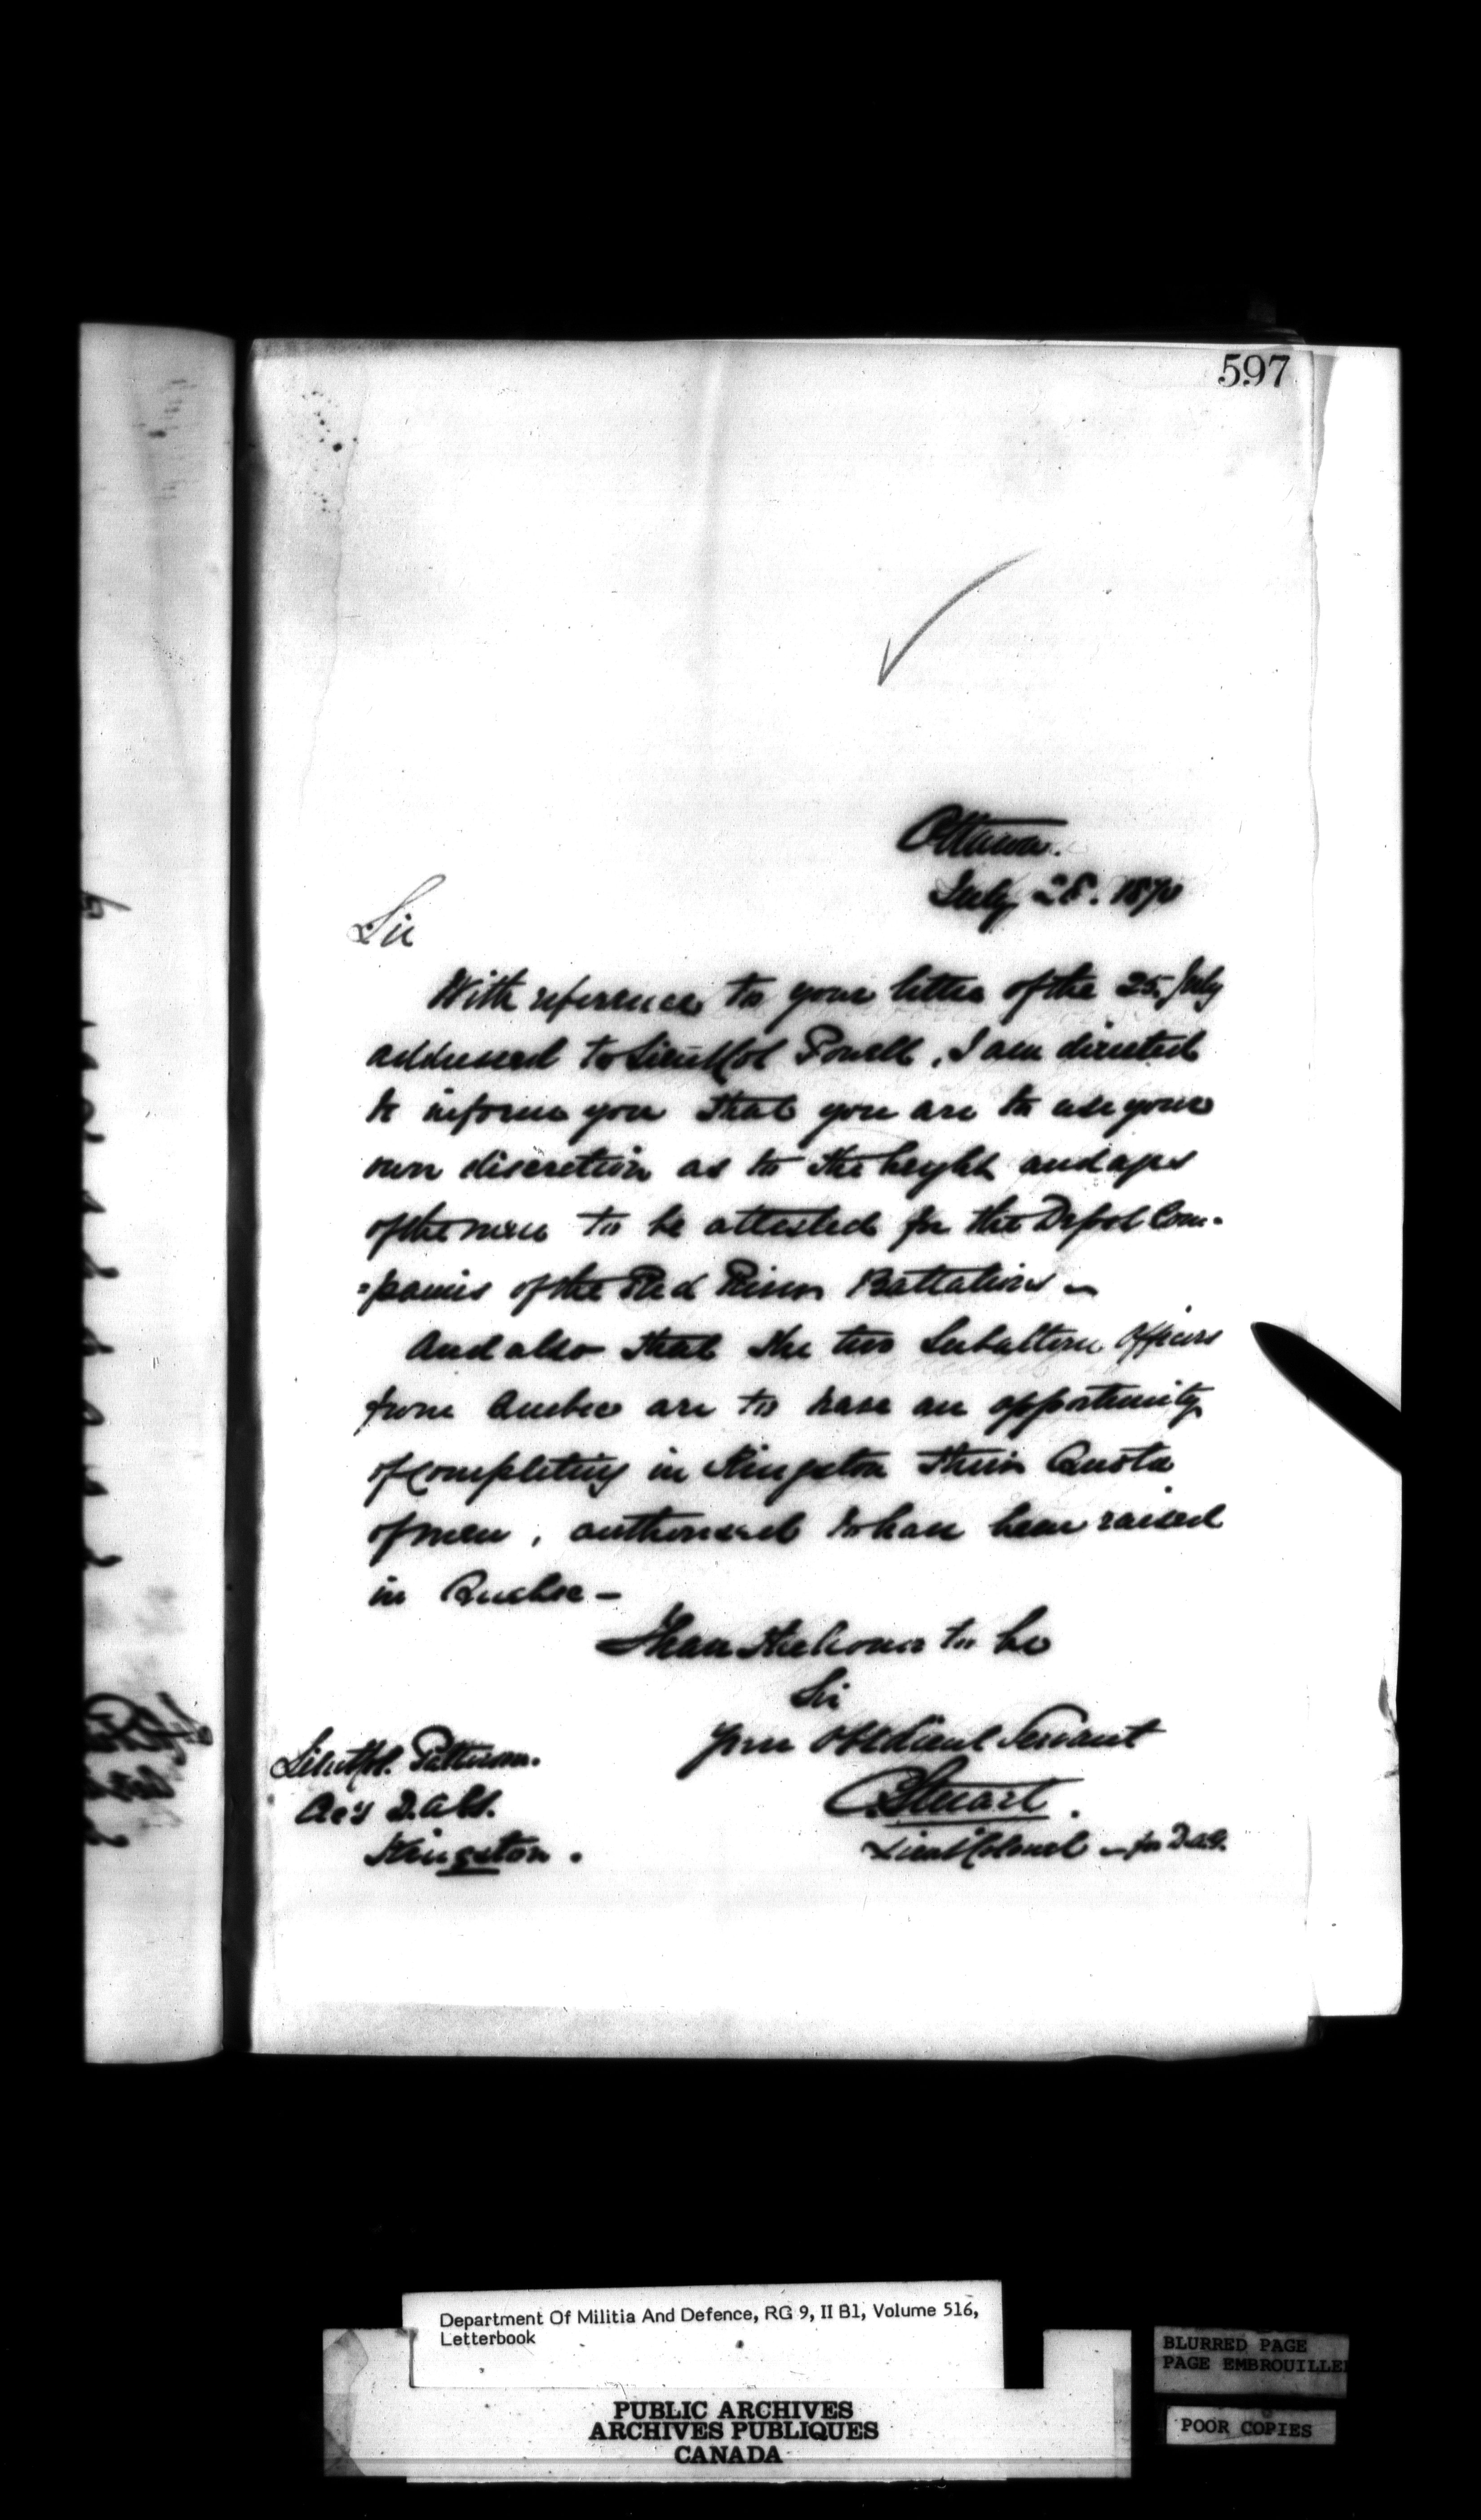 597
Ottawa.
July 28. 1870
Sir
With reference to your letter of the 25. July
addressed to Lieut Col Powell, I am directed
to inform you that you are to use your
own discretion as to the height and ages
of the men to be attested for the Depot Com-
=panies of the Red River Battalions -
And also that the two Subaltern Officers
from Quebec are to have an opportunity
of completing in Kingston their Quota
of men, authorised to have been raised
in Quebec -
I have the honor to be
Sir
Your Obedient Servant
C. Stuart.
Lieut Colonel - for D.A.G.
Lieut Col. Patterson.
Ac'g D.A.G.
Kingston.
Department Of Militia And Defence, RG 9, II B1, Volume 516,
Letterbook
BLURRED PAGE
PAGE EMBROUILLEE
POOR COPIES
PUBLIC ARCHIVES
ARCHIVES PUBLIQUES
CANADA